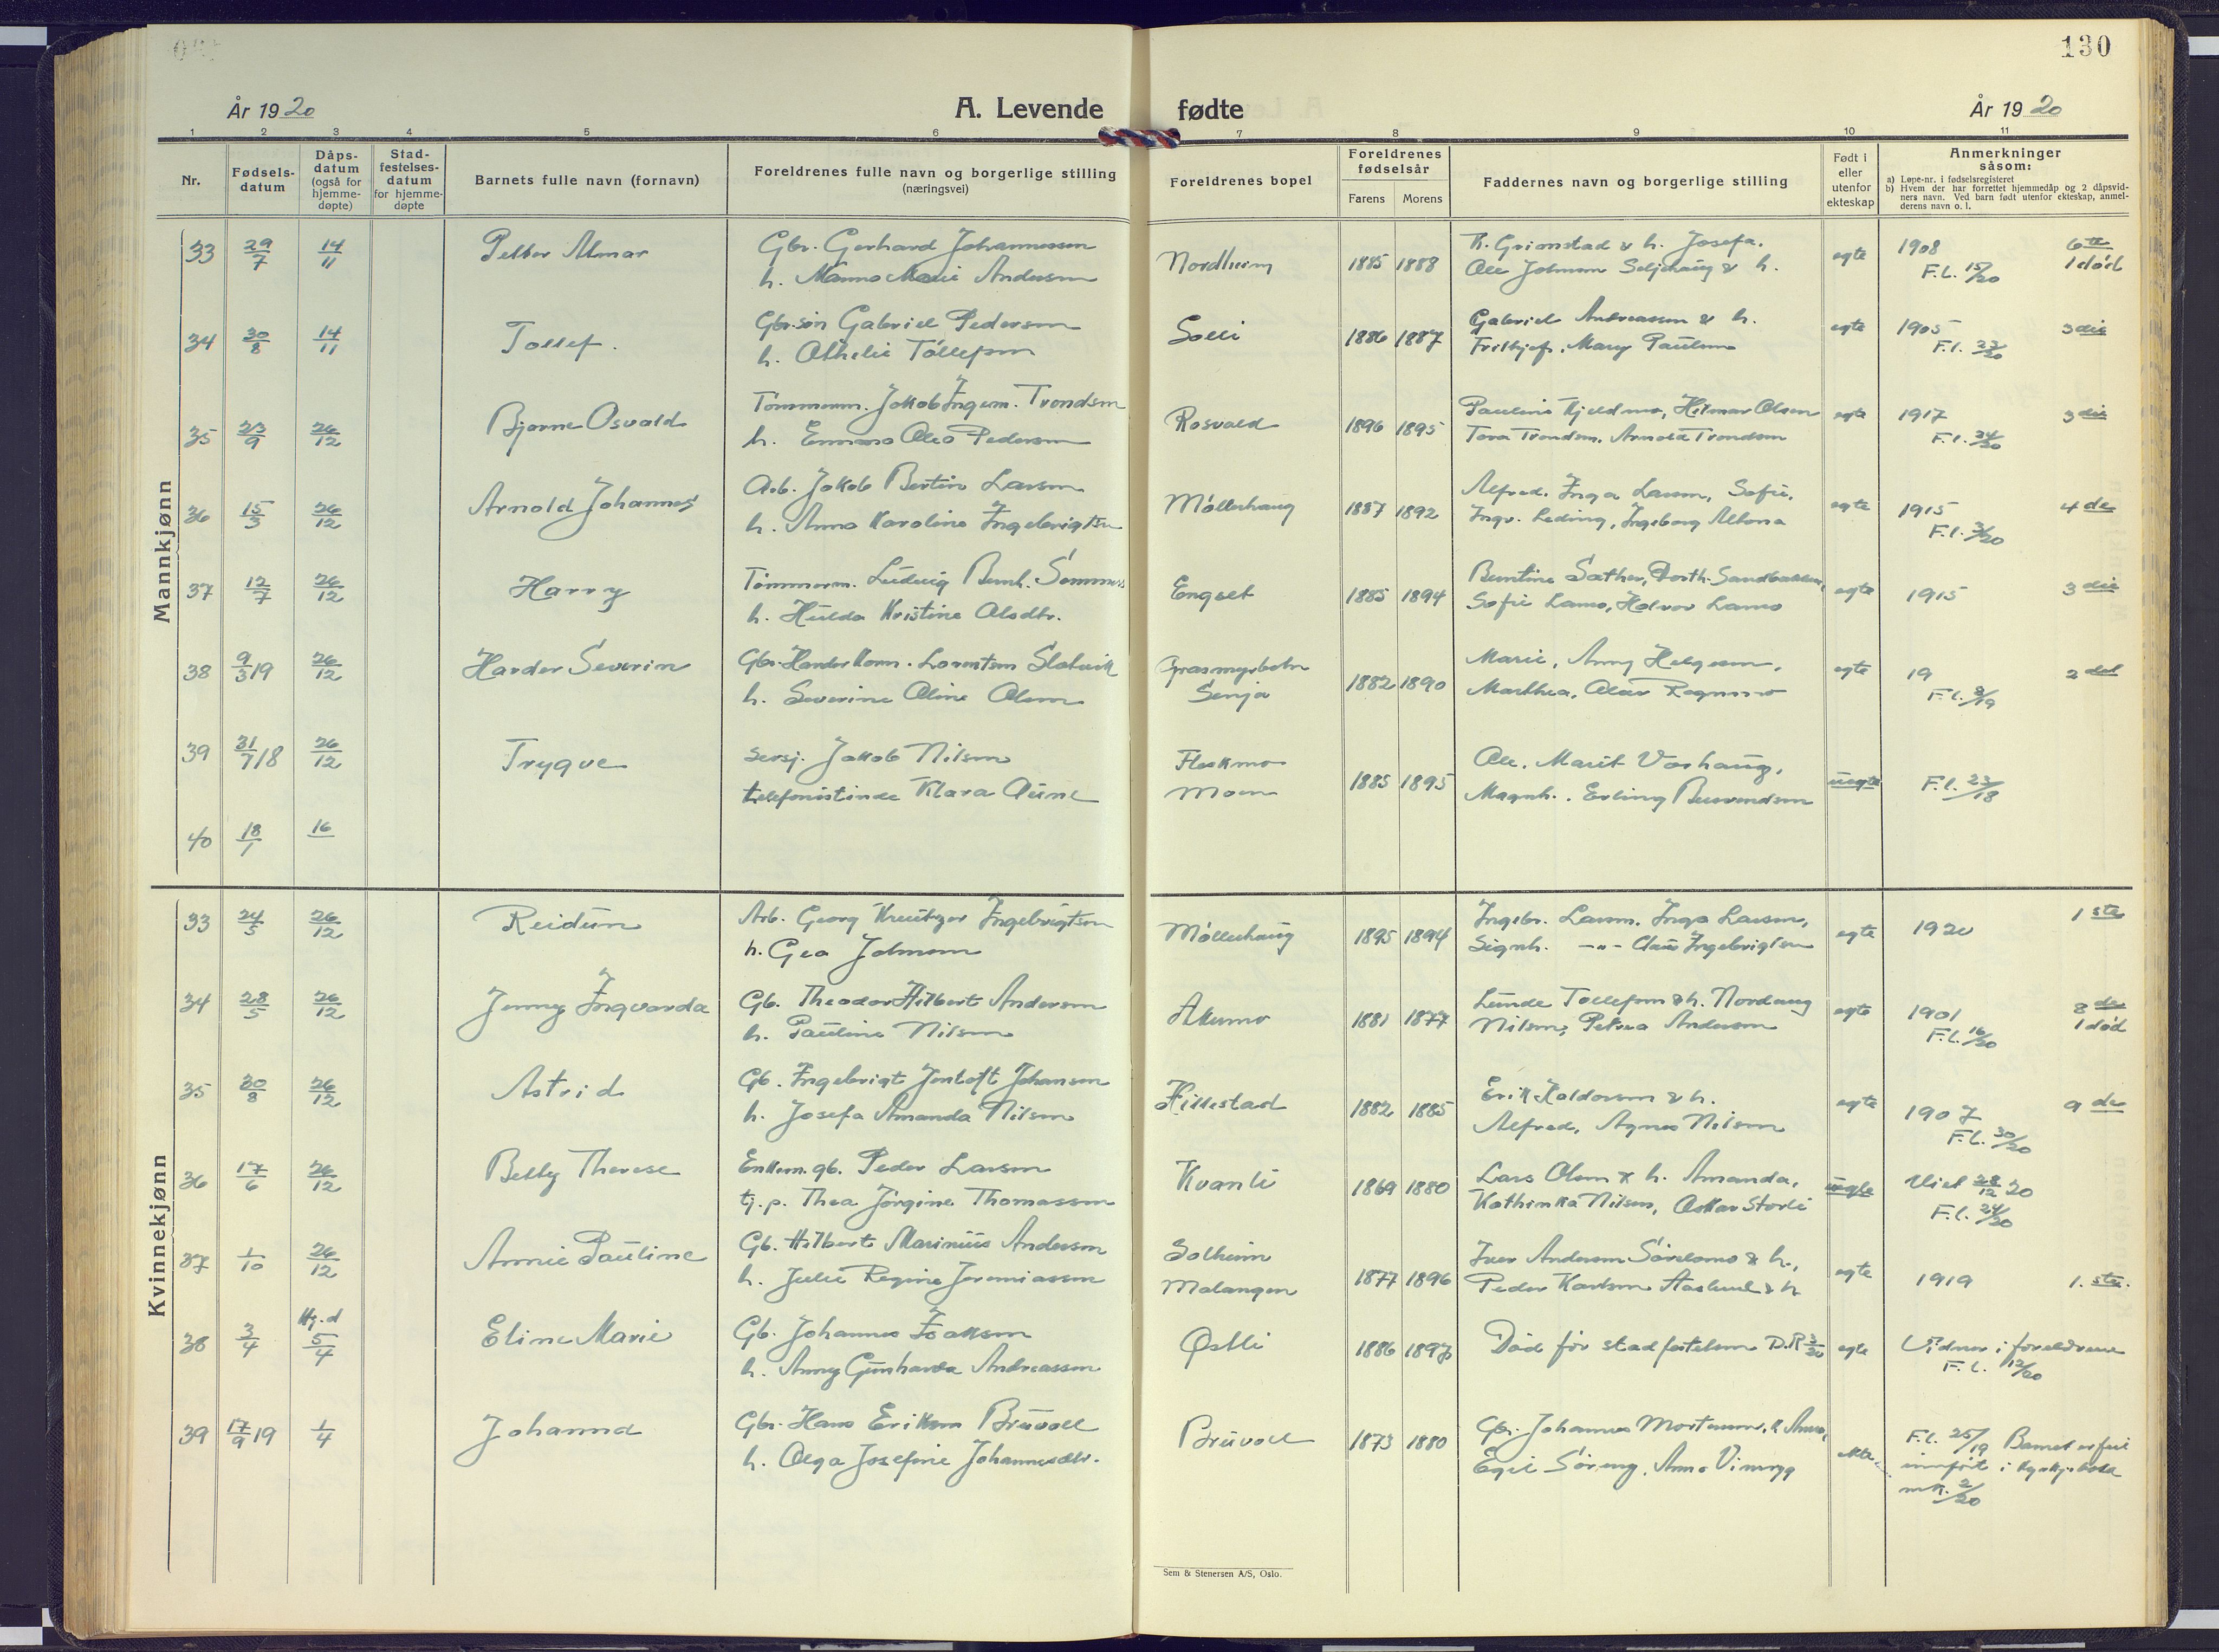 130
År 1920
A. Levende fødte
År 1920
1 2 3 4 5 6 7 8 9 10 11
Nr.
Fødsels-datum
Dåps-datum (også for hjemme-døpte)
Stad-festelses-datum for hjemme-døpte
Barnets fulle navn (fornavn)
Foreldrenes fulle navn og borgerlige stilling (næringsvei)
Foreldrenes bopel
Foreldrenes fødselsår
Farens Morens
Faddernes navn og borgerlige stilling
Født i eller utenfor ekteskap
Anmerkninger såsom:
a) Løpe-nr. i fødselsregisteret
b) Hvem der har forrettet hjemmedåp og 2 dåpsvid-
ners navn. Ved barn født utenfor ekteskap, anmel-
derens navn o. l.
Mannkjønn
33 29/7 14/11 Petter Almar Gbr. Gerhard Johannessen Nordheim 1885 1888 K. Grimstad & h. Josefa. egte 1908 6te
h. Marie Andersen Ole Johnsen & h. F.l. 15/20 1 død
34 30/8 14/11 Tollef. Gbr.søn Gabriel Pedersen Solli 1886 1887 Gabriel Andreassen & h. egte 1905 3die
h. Othelie Tollefsen Fritjof, Mary Paulsen F.l. 22/20
35 23/9 26/12 Bjarne Osvald Tømmerm. Jakob Ingem. Trondsen Rosvald 1896 1895 Pauline Kjeldmo, Hilmar Olsen egte 1917 3die
h. Emma Olea Pedersen Tora Trondsen, Arnold Trondsen F.l. 24/20
36 15/3 26/12 Arnold Johannes Arb. Jakob Bertin Larsen Møllerhaug 1887 1892 Alfred, Inga Larsen, Sofie, egte 1915 4de
h. Anna Karoline Ingebrigtsen Ingv. Leding, Ingeborg F.l. 3/20
37 12/7 26/12 Harry Tømmerm. Ludvig Bernh. Engset 1885 1894 Berntine Sæther, egte 1915 3die
h. Hulda Kristine Olsdtr. Sofie Lamo, Halvor Lamo
38 9/3 19 26/12 Harder Severin Gbr. Harder Korn. Lorentsen Slatvik Grasmyrbotn 1882 1890 Marie, Anny Helgesen, egte 19 2det
h. Severine Oline Olsen Senja Marthea, Olav Regnmo F.l. 8/19
39 31/7 18 26/12 Trygve sersj. Jakob Nilsen 1885 1895 Ole, Marit Vorhaug, uegte F.l. 23/18
telefonistinde Klara Aune Moen Magnh., Erling
40 18/1 16
Kvinnekjønn
33 24/5 26/12 Reidun Arb. Georg Kreutzer Ingebrigtsen Møllerhaug 1895 1894 Ingebr. Larsen, Inga Larsen, egte 1920 1ste
h. Gea Johnsen Signh. -"- Claus Ingebrigtsen
34 28/5 26/12 Jenny Ingvarda Gb. Theodor Hilbert Andersen Akermo 1881 1877 Lunde Tollefsen & h. egte 1901 8de
h. Pauline Nilsen Nilsen, Petrea Andersen F.l. 16/20 1 død
35 30/8 26/12 Astrid Gb. Ingebrigt Jentoft Johansen Hillestad 1882 1885 Erik Haldorsen & h. egte 1907 9de
h. Josefa Amanda Nilsen Alfred, Agnes Nilsen F.l. 30/20
36 17/6 26/12 Betty Therese Enkem. gb. Peder Larsen Kvanli 1869 1880 Lars Olsen & h. Amanda, uegte Viet 28/12 20
tj.p. Thea Jørgine Thomassen Kathinka Nilsen, Oskar Storli F.l. 24/20
37 1/10 26/12 Annie Pauline Gb. Hilbert Marinius Andersen Solheim 1877 1896 Iver Andersen & h., egte 1919 1.ste.
h. Julie Regine Jeremiassen Malangen Peder Karlsen Aaslund & h
38 3/4 Hj.d 5/4 Eline Marie Gb. Johannes Isaksen Østli 1886 1897 Død før stadfestelsen D.R 3/20 egte Vidner: foreldrene
h. Anny Gunharda Andreassen F.l. 12/20
39 17/9 19 1/4 Johanna Gbr. Hans Eriksen Bruvoll Bruvoll 1873 1880 Gbr. Johannes Mortensen, & Anna, ekte F.l. 25/19 Barnet er feil
h. Olga Josefine Johannesdtr. Egil Søreng, Anna innført i
2/20
Sem & Stenersen A/S, Oslo.